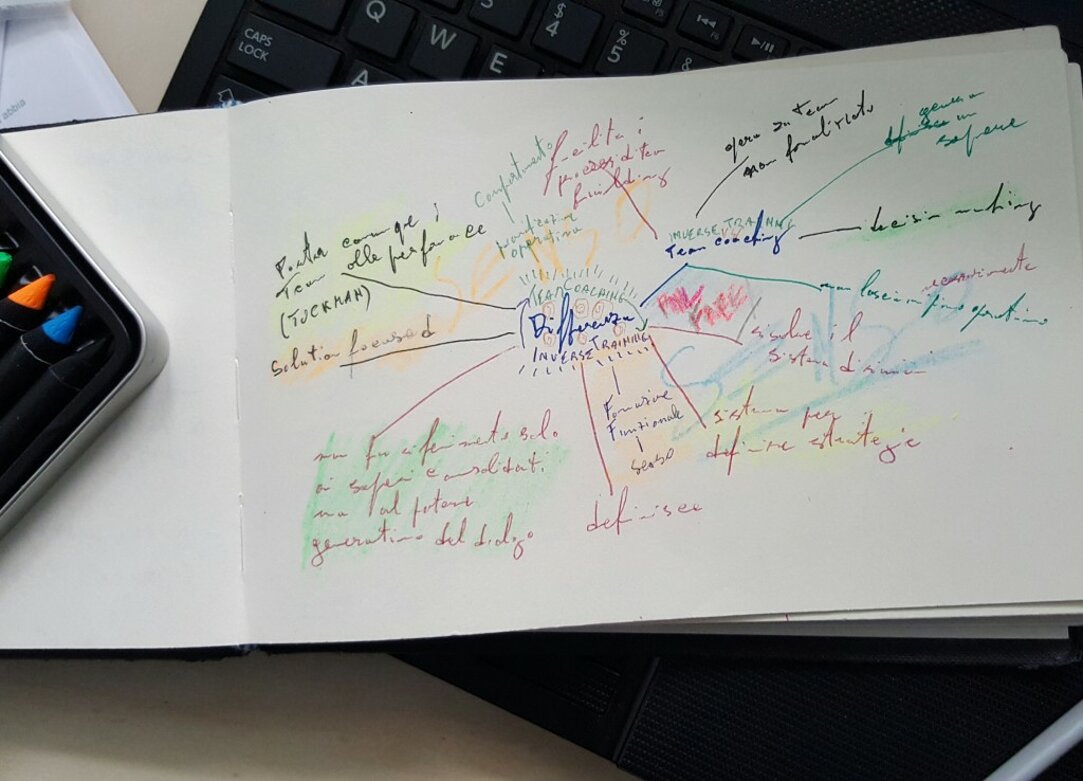 Q
CAPS
LOCK
W
E
A
$
4
%
5
F6
abbia
Comportamento
facilita i
processi di team
building
opera su team
non formalizzato
genera
definisce un
sapere
Portar comunque i
Team alle performance
(TUCKMAN)
operativa
INVERSE TRAINING
VS
Team coaching
decision making
SENSO
TEAM COACHING
Differenza
INVERSE TRAINING
necessariamente
non lascia un piano operativo
Solution focused
risolve il
sistema di
SENSO
Formazione
Funzionale
senso
sistema per
definire strategie
non fa riferimento solo
ai saperi consolidati
ma al potere
generativo del dialogo
definisce